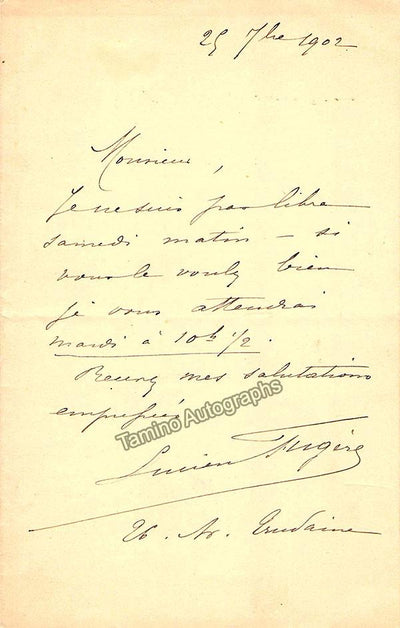 25 7bre 1902
Monsieur,
Je ne suis pas libre
samedi matin - si
vous le voulez bien
je vous attendrai
mardi à 10h 1/2.
Recevez mes salutations
empressées
Tamino Autographs
Lucien Fugère
26. Av. Trudaine